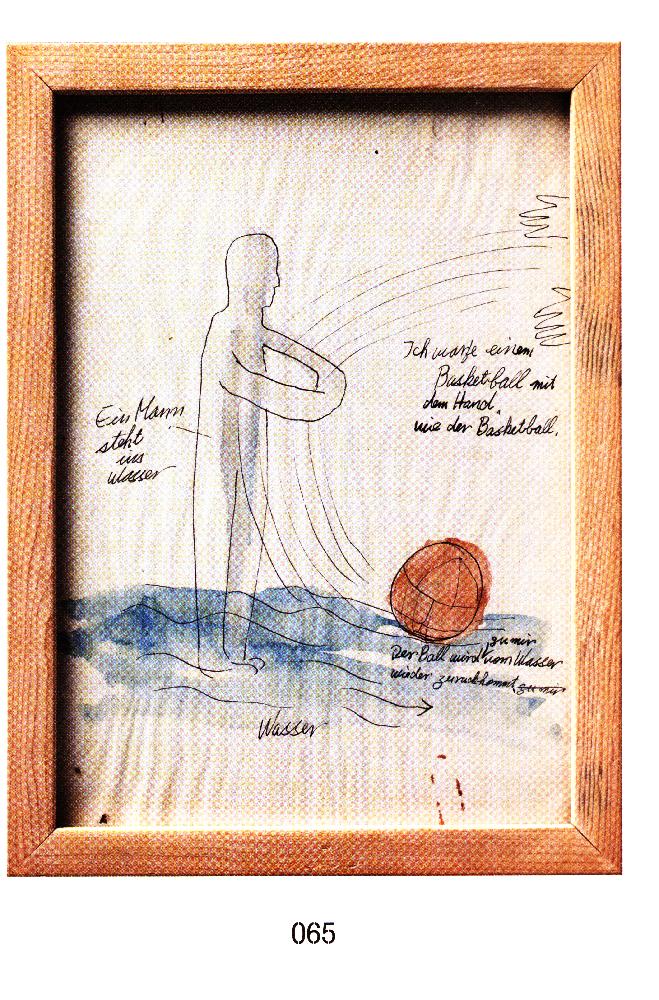 Ich warfe einem
Basketball mit
dem Hand,
wie der Basketball.
Ein Mann
steht
ins
Wasser
zu mir
Der Ball wird vom Wasser
wieder zurückkommt zu mir
Wasser
065